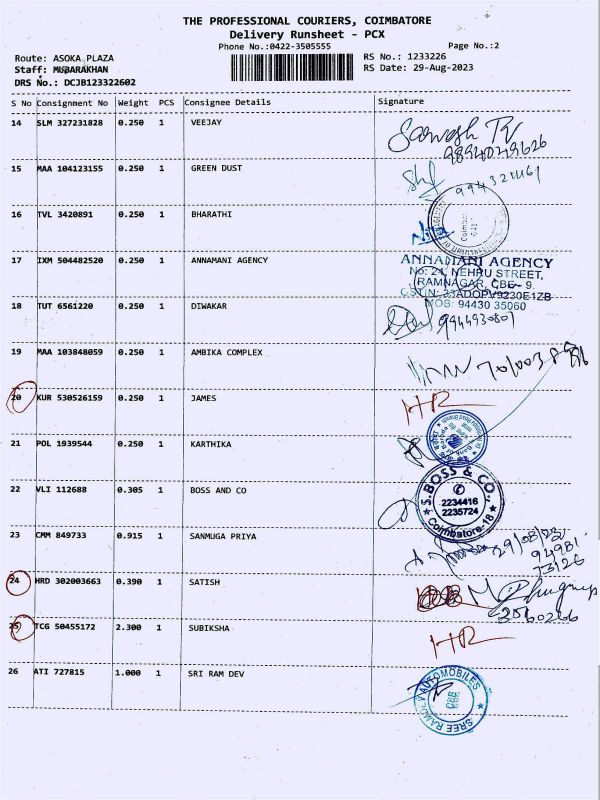 THE PROFESSIONAL COURIERS, COIMBATORE
Delivery Runsheet - PCX
Phone No.:0422-3505555
Page No.:2
Route: ASOKA PLAZA
RS No.: 1233226
Staff: MUBARAKHAN
RS Date: 29-Aug-2023
DRS No.: DCJB123322602
S No Consignment No Weight PCS Consignee Details Signature
14 SLM 327231828 0.250 1 VEEJAY
9894049626
15 MAA 104123155 0.250 1 GREEN DUST
16 TVL 3420891 0.250 1 BHARATHI
17 IXM 504482520 0.250 1 ANNAMANI AGENCY
ANNAMANI AGENCY
No: 24, NEHRU STREET,
RAMNAGAR, CBE- 9.
GSTIN: 33ADOPV9230E1ZB
MOB: 94430 35060
18 TUT 6561220 0.250 1 DIWAKAR
9944930801
19 MAA 103848059 0.250 1 AMBIKA COMPLEX
20 KUR 530526159 0.250 1 JAMES
HR
21 POL 1939544 0.250 1 KARTHIKA
22 VLI 112688 0.305 1 BOSS AND CO
S. BOSS & CO.
2234416
2235724
Coimbatore-18
23 CMM 849733 0.915 1 SANMUGA PRIYA
29/08/23
94981
73126
24 HRD 302003663 0.390 1 SATISH
3560266
25 TCG 50455172 2.300 1 SUBIKSHA
HR
26 ATI 727815 1.000 1 SRI RAM DEV
SREE RAMDEV AUTOMOBILES
CBE